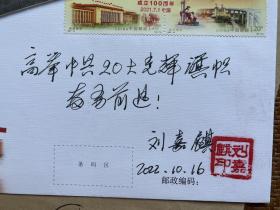 成立100周年
2021.7.1
高举中共20大光辉旗帜
奋勇前进!
刘嘉麒
2022.10.16
条码区
邮政编码: